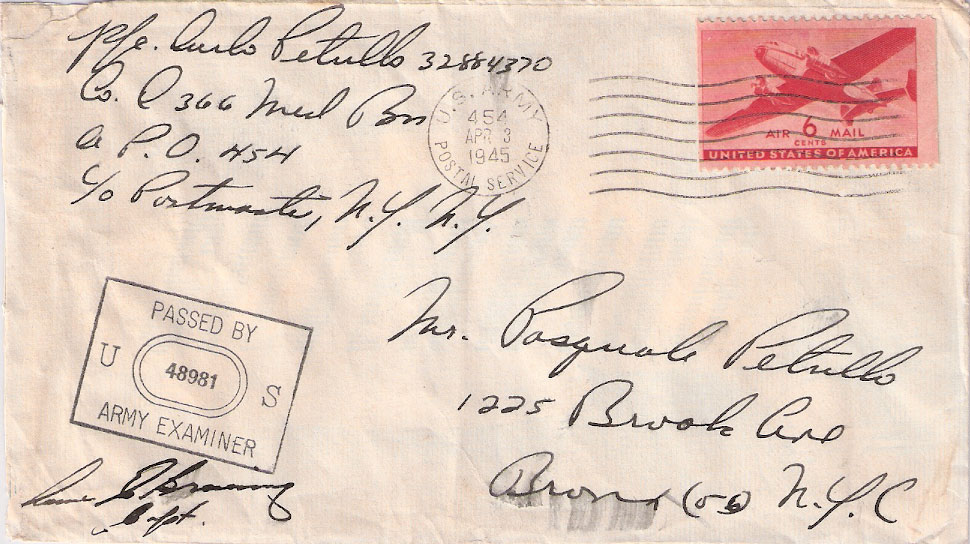 Pfc. Carlo Petrullo 32884370
Co. C 366 Med Bn
A. P.O. 454
c/o Postmaster, N.Y. N.Y.
U.S. ARMY
454
APR 3
1945
POSTAL SERVICE
AIR 6 MAIL
CENTS
UNITED STATES OF AMERICA
PASSED BY
U 48981 S
ARMY EXAMINER
Capt.
Mr. Pasquale Petrullo
1225 Brook Ave
Bronx (56) N.Y.C